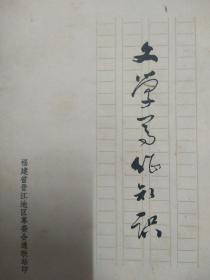 文学写作知识
福建省晋江地区革委会通联站印